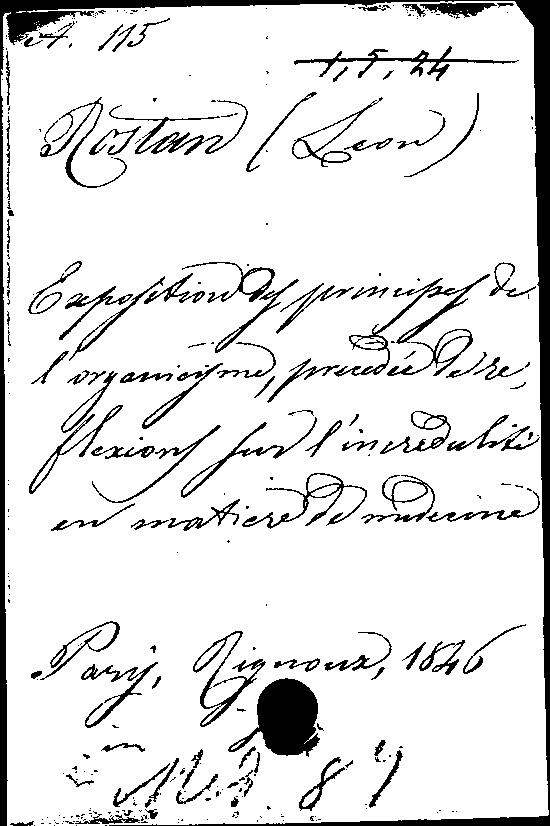 A. 115
1, 5, 24
Rostan (Leon)
Exposition des principes de
l'organicisme, precedée de re-
flexions sur l'incredulité
en matiere de medecine
Paris, Rignoux, 1846
in
Med. 87